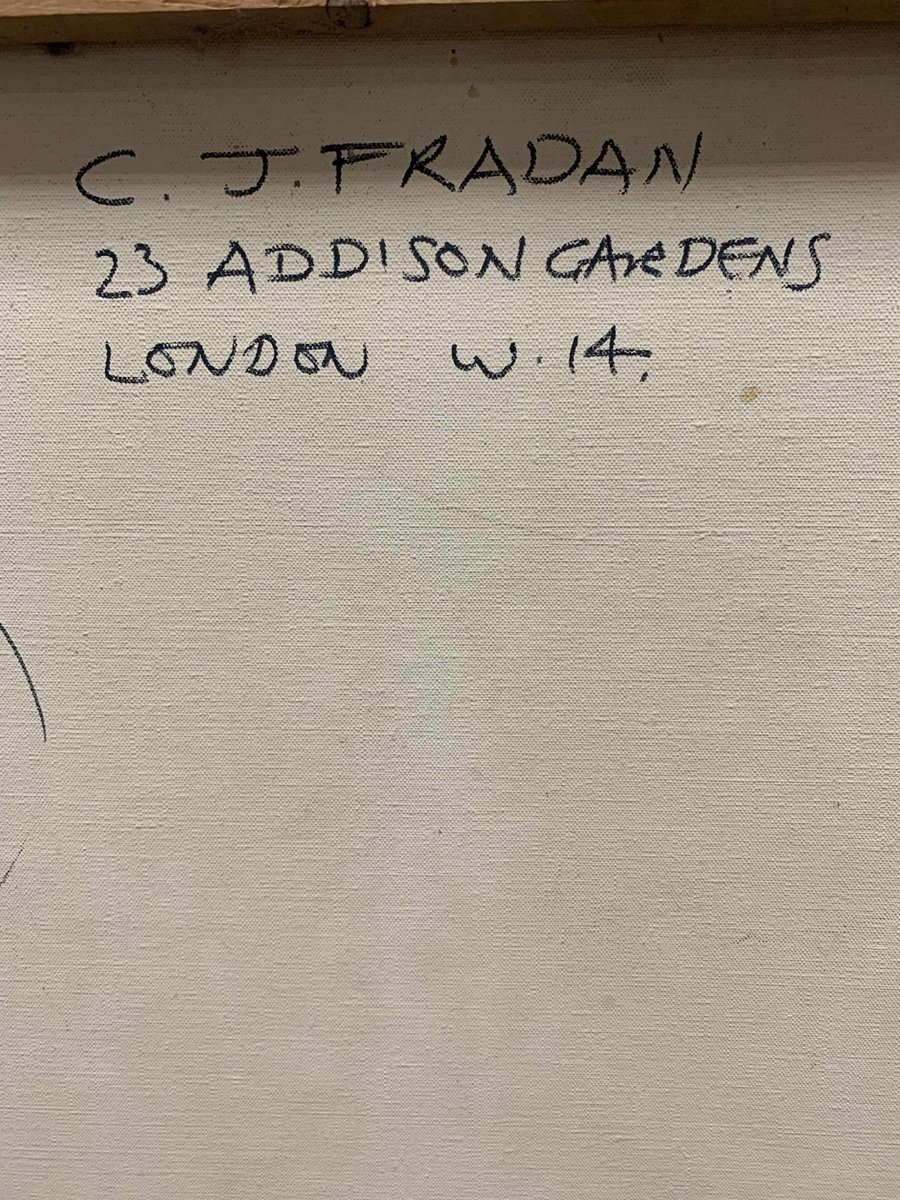 C. J. FRADAN
23 ADDISON GARDENS
LONDON W. 14.